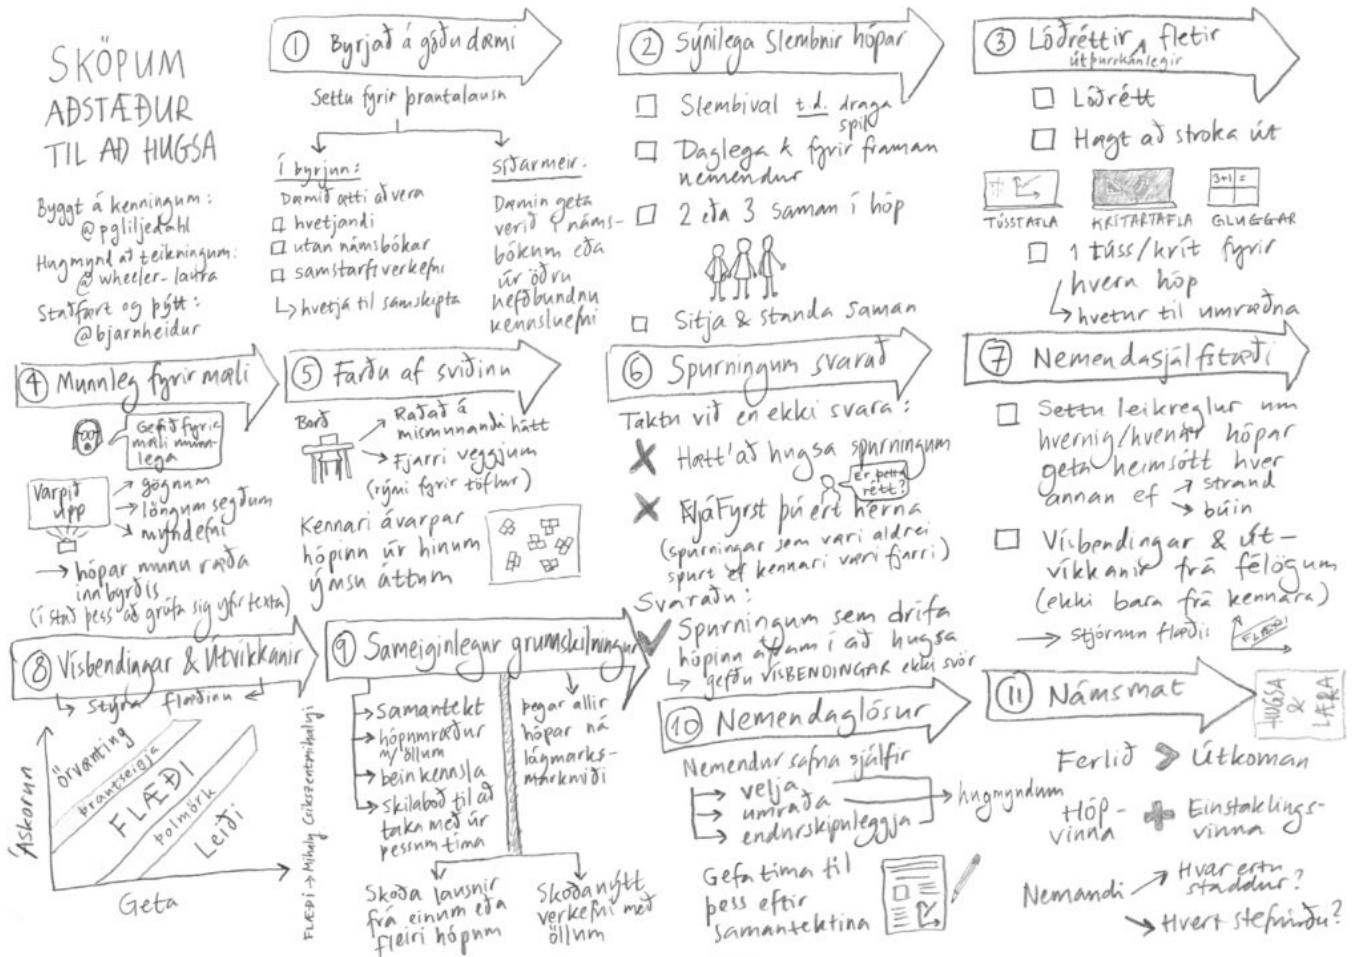 SKÖPUM
AÐSTÆÐUR
TIL AÐ HUGSA
Byggt á kenningum:
@pgliljedahl
Hugmynd að teikningum:
@wheeler-laura
Staðfært og þýtt:
@bjarnheidur
① Byrjað á góðu dæmi
Settu fyrir þrautalausn
Í byrjun:
Dæmið ætti að vera
hvetjandi
utan námsbókar
samstarfsverkefni
hvetja til samskipta
Síðarmeir:
Dæmin geta
verið í náms-
bókum eða
úr öðru
hefðbundnu
kennsluefni
② Sýnilega Slembnir hópar
Slembival t.d. draga
spil
Daglega & fyrir framan
nemendur
2 eða 3 saman í hóp
Sitja & standa saman
③ Lóðréttir fletir
útþurrkanlegir
Lóðrétt
Hægt að stroka út
3+1 =
TÚSSTAFLA KRÍTARTAFLA GLUGGAR
1 túss/krít fyrir
hvern hóp
hvetur til umræðna
④ Munnleg fyrirmæli
Gefið fyrir-
mæli munn-
lega
Varpið
upp
gögnum
löngum segðum
myndefni
hópar munu ræða
innbyrðis
(í stað þess að grúfa sig yfir texta)
⑤ Farðu af sviðinu
Borð
Raðað á
mismunandi hátt
Fjarri veggjum
(rými fyrir töflur)
Kennari ávarpar
hópinn úr hinum
ýmsu áttum
⑥ Spurningum svarað
Taktu við en ekki svara:
Hætt'að hugsa spurningum
Er þetta
rétt?
Fyrst þú ert hérna
(spurningar sem væri aldrei
spurt ef kennari væri fjarri)
Svaraðu:
Spurningum sem drífa
hópinn áfram í að hugsa
gefðu VÍSBENDINGAR ekki svör
⑦ Nemendasjálfstæði
Settu leikreglur um
hvernig/hvenær hópar
geta heimsótt hver
annan ef strand
búin
Vísbendingar & út-
víkkanir frá félögum
(ekki bara frá kennara)
Stjórnun flæðis
FLÆÐI
⑧ Vísbendingar & Útvíkkanir
Stýra flæðinu
Áskorun
Örvænting
Þrautseigja
FLÆÐI
Þolmörk
Leiði
Geta
FLÆÐI → Mihaly Csikszentmihalyi
⑨ Sameiginlegur grunnskilningur
Samantekt
hópumræður
m/öllum
bein kennsla
skilaboð til að
taka með úr
þessum tíma
þegar allir
hópar ná
lágmarks-
markmiði
Skoða lausnir
frá einum eða
fleiri hópum
Skoða nýtt
verkefni með
öllum
⑩ Nemendaglósur
Nemendur safna sjálfir
velja
umræða
endurskipuleggja
hugmyndum
Gefa tíma til
þess eftir
samantektina
⑪ Námsmat
HUGSA
&
LÆRA
Ferlið > Útkoman
Hóp-
vinna
+
Einstaklings-
vinna
Nemandi
Hvar ertu
staddur?
Hvert stefnirðu?